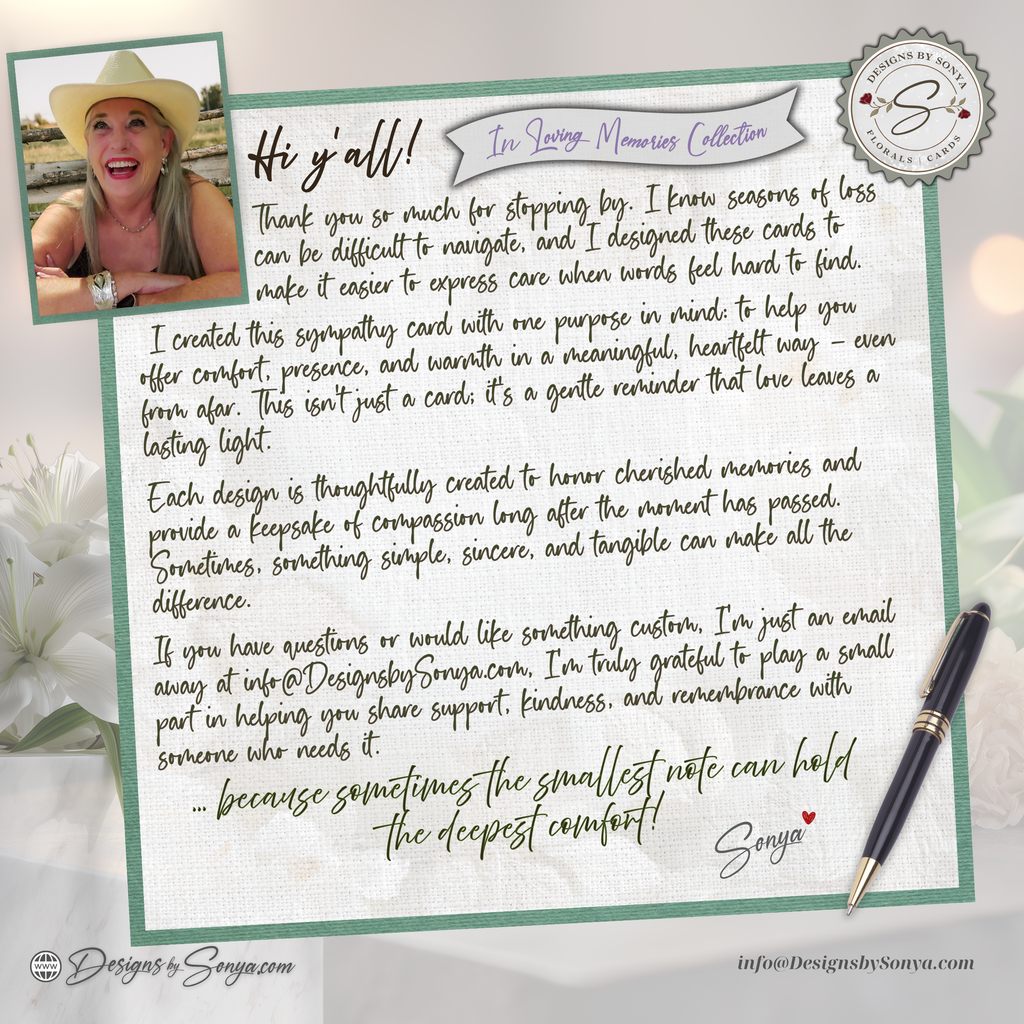 DESIGNS BY SONYA
S
FLORALS | CARDS
In Loving Memories Collection
Hi y'all!
Thank you so much for stopping by. I know seasons of loss
can be difficult to navigate, and I designed these cards to
make it easier to express care when words feel hard to find.
I created this sympathy card with one purpose in mind: to help you
offer comfort, presence, and warmth in a meaningful, heartfelt way – even
from afar. This isn't just a card; it's a gentle reminder that love leaves a
lasting light.
Each design is thoughtfully created to honor cherished memories and
provide a keepsake of compassion long after the moment has passed.
Sometimes, something simple, sincere, and tangible can make all the
difference.
If you have questions or would like something custom, I'm just an email
away at info@DesignsbySonya.com, I'm truly grateful to play a small
part in helping you share support, kindness, and remembrance with
someone who needs it.
... because sometimes the smallest note can hold
the deepest comfort!
Sonya
www
Designs by Sonya.com
info@DesignsbySonya.com